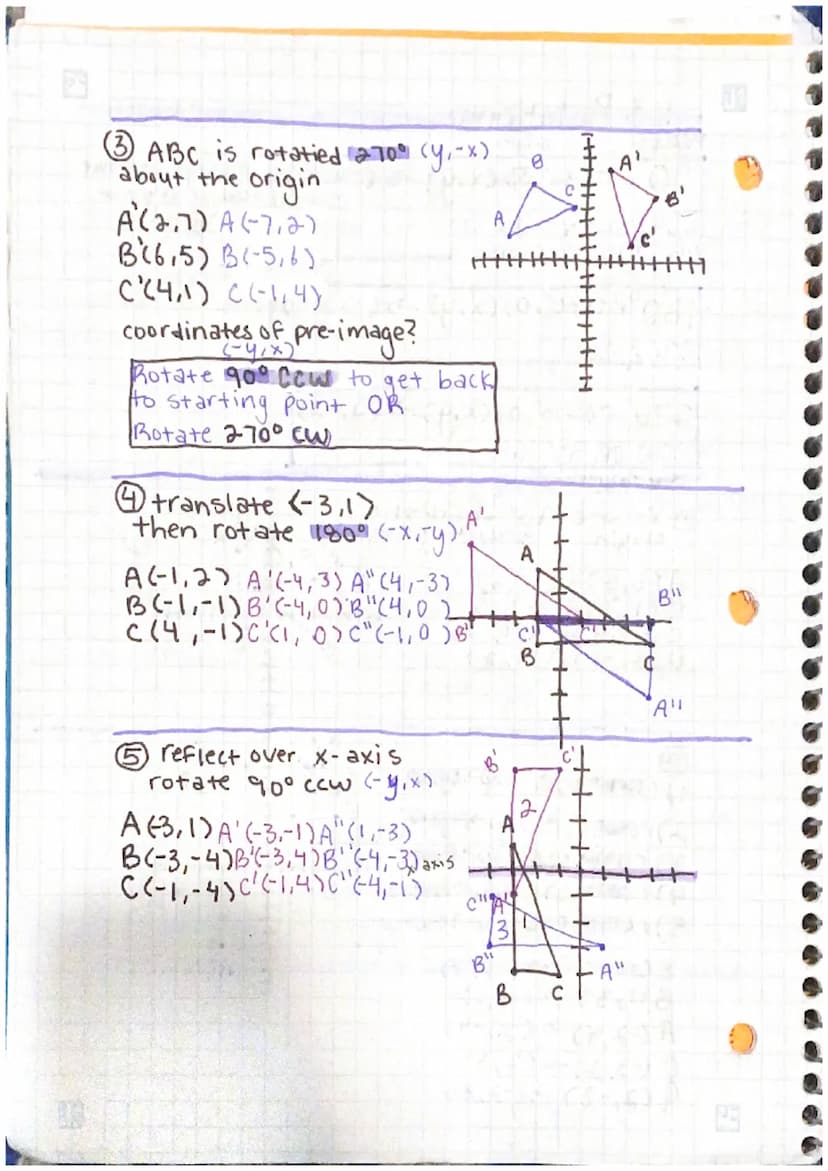 ③ ABC is rotatied 270° (y,-x)
about the origin
A'(2,7) A(-7,2)
B'(6,5) B(-5,6)
C'(4,1) C(-1,4)
coordinates of pre-image?
(-y,x)
Rotate 90° CCW to get back
to starting point OR
Rotate 270° CW
B
C
A
A'
B'
C'
④ translate <-3,1>
then rotate 180° (-x,-y)
A(-1,2) A'(-4,3) A"(4,-3)
B(-1,-1) B'(-4,0) B"(4,0)
C(4,-1) C'(1,0) C"(-1,0)
A'
A
B"
B'
C"
C'
B
C
A"
⑤ reflect over x-axis
rotate 90° ccw (-y,x)
A(-3,1) A'(-3,-1) A"(1,-3)
B(-3,-4) B'(-3,4) B"(-4,-3)
C(-1,-4) C'(-1,4) C"(-4,-1)
x axis
B'
C'
2
A
C"
A'
1
3
B"
A"
B
C